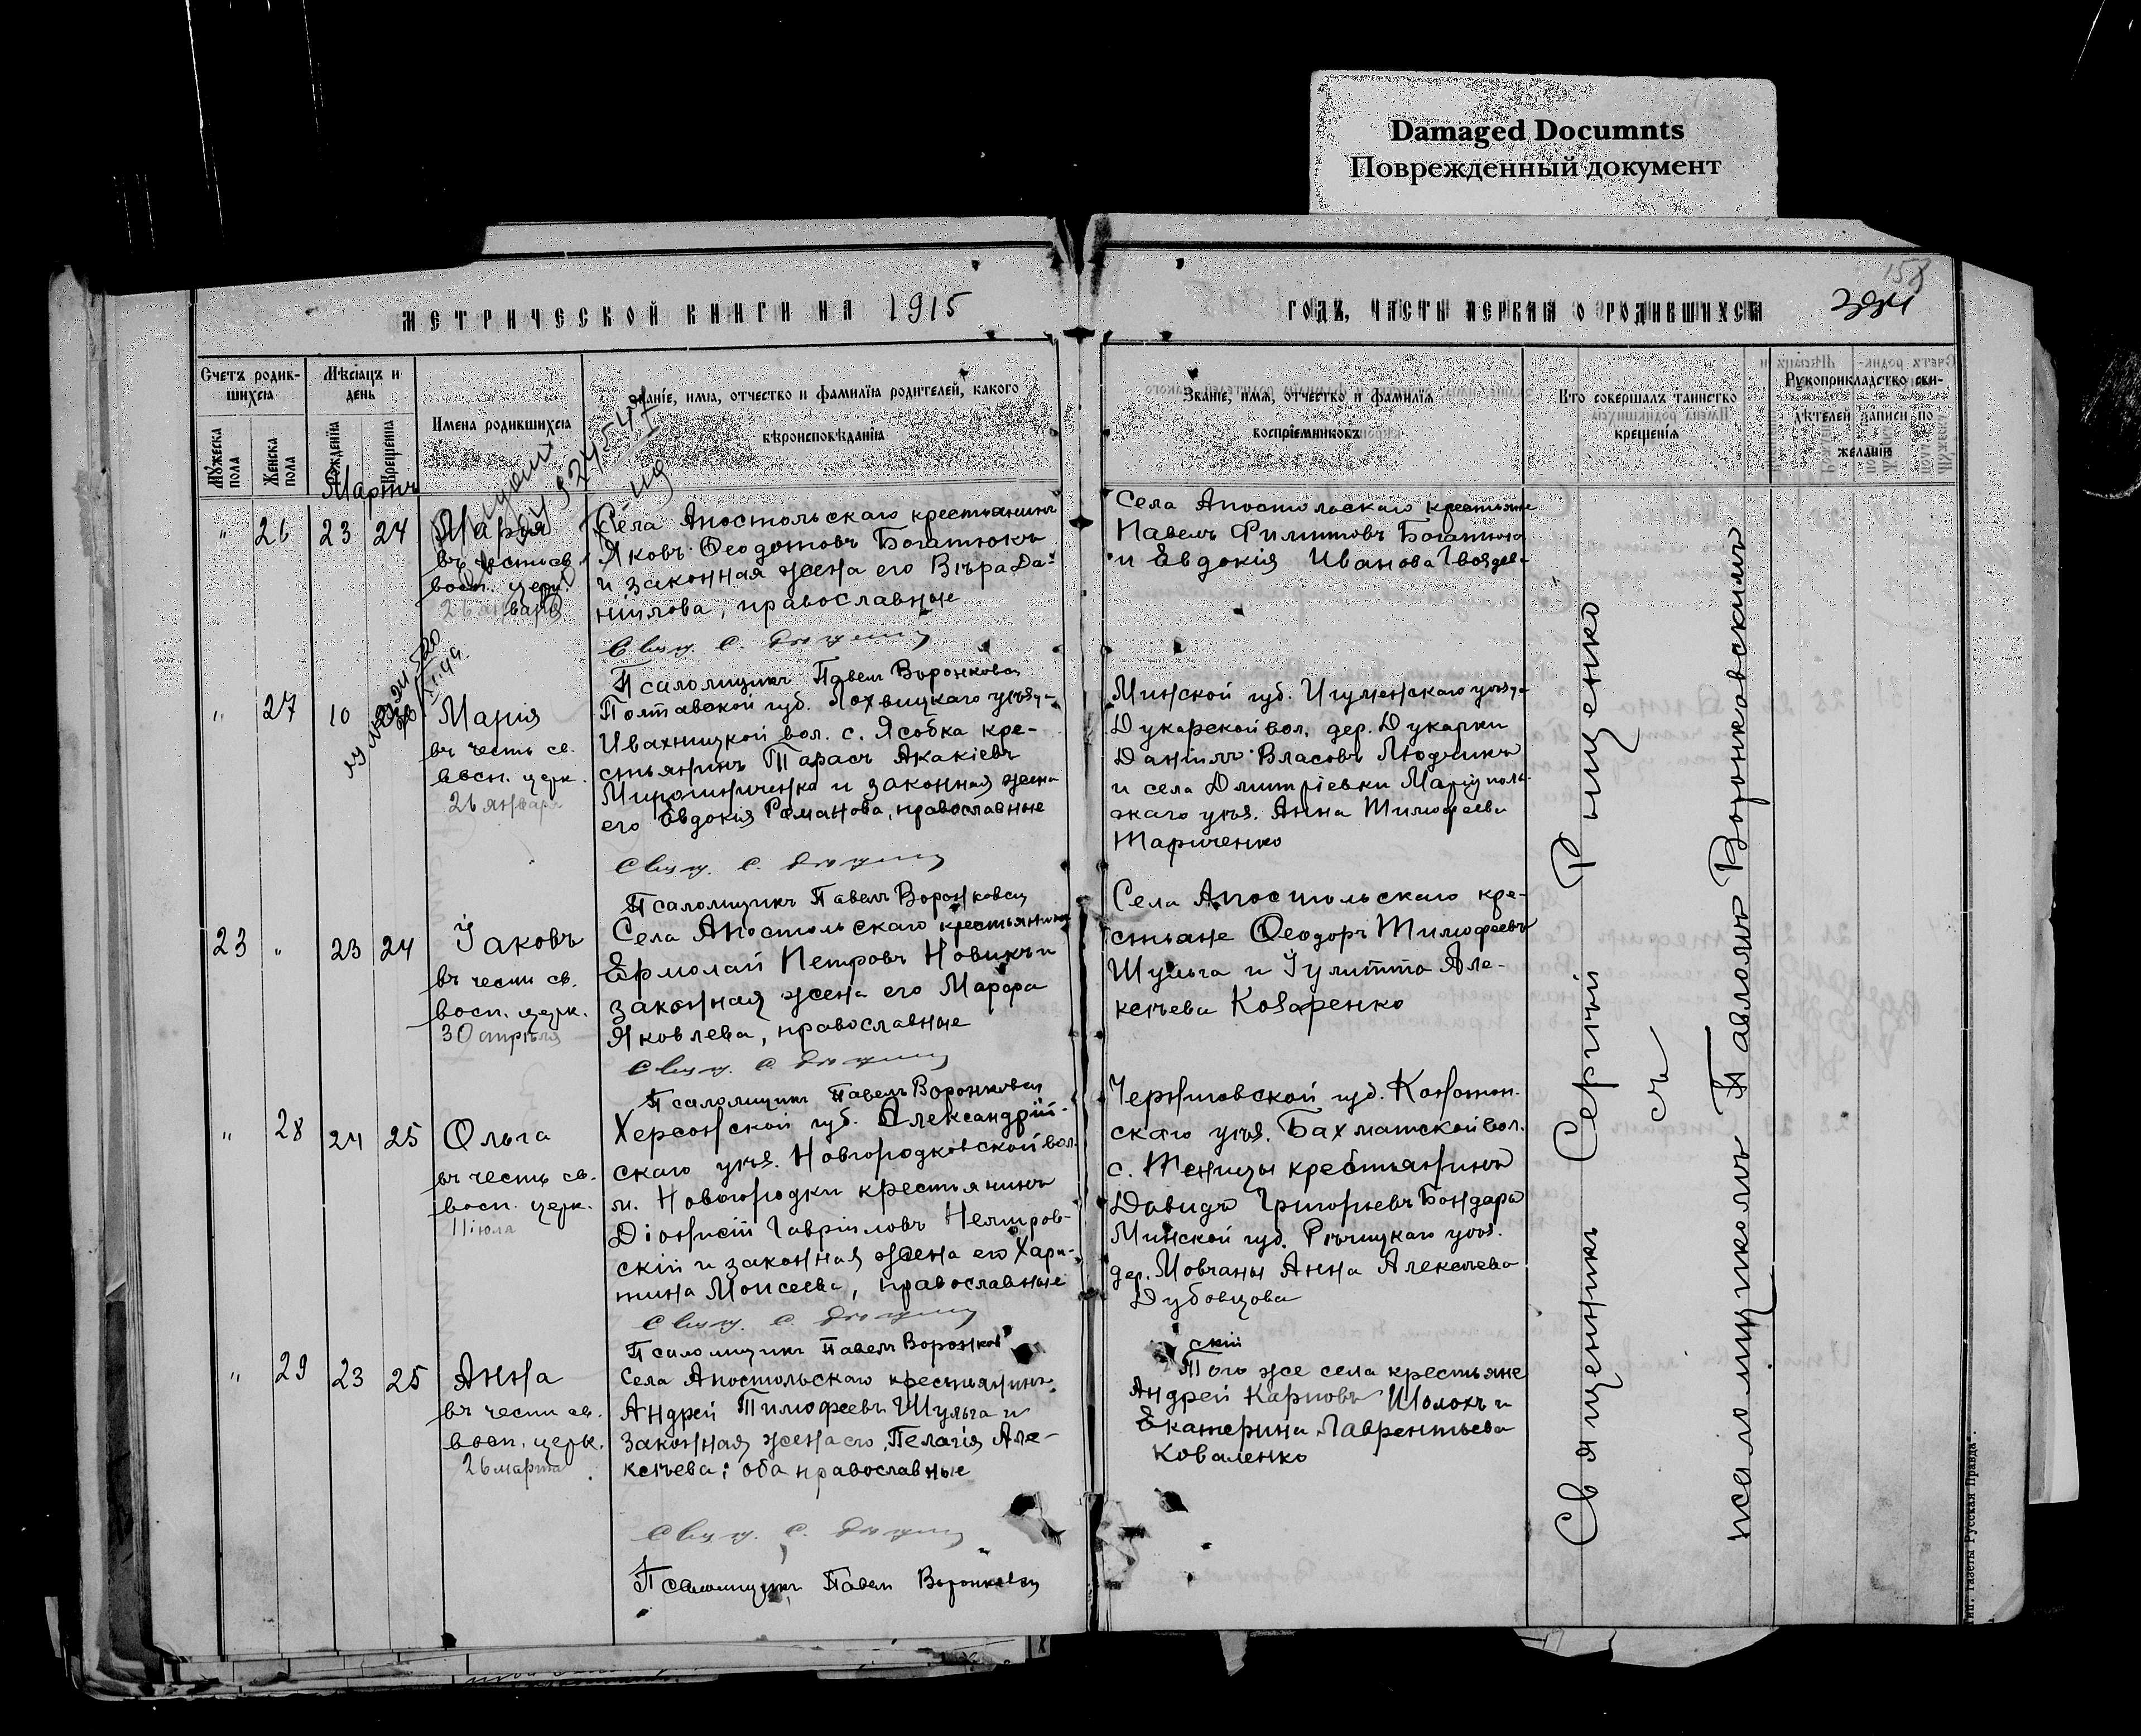 Damaged Documnts
Поврежденный документ
158
394
МЕТРИЧЕСКОЙ КНИГИ НА 1915
ГОДЪ, ЧАСТЬ ПЕРВАЯ О РОДИВШИХСЯ
Счетъ родив-
шихся
Мѣсяцъ и
день
Мужеска
пола
Женска
пола
Рожденія
Крещенія
Имена родившихся
Званіе, имя, отчество и фамилія родителей, какого
вѣроисповѣданія
Званіе, имя, отчество и фамилія
воспріемниковъ
Кто совершалъ таинство
крещенія
Рукоприкладство сви-
дѣтелей записи по
желанію
Мартъ
" 26 23 24
Марія
въ честь св.
восп. церк.
26 января
Села Апостольскаго крестьянинъ
Яковъ Ѳеодотовъ Богатюкъ
и законная жена его Вѣра Да-
нилова, православные
Псаломщикъ Павелъ Воронковск
Села Апостольскаго крестьяне
Павелъ Филиповъ Богатюкъ
и Евдокія Иванова Гвоздев-
" 27 10
Марія
въ честь св.
восп. церк.
26 января
Полтавской губ. Лохвицкаго уѣз.
Ивахницкой вол. с. Ясобка кре-
стьянинъ Тарасъ Акакіевъ
Мирошниченко и законная жена
его Евдокія Романова, православные
Псаломщикъ Павелъ Воронковск
Минской губ. Игуменскаго уѣз.
Дукорской вол. дер. Дукарки
Даніилъ Власовъ Людчикъ
и села Дмитріевки Маріуполь-
скаго уѣз. Анна Тимофеева
Тариченко
23 " 23 24
Іаковъ
въ честь св.
восп. церк.
30 апрѣля
Села Апостольскаго крестьянинъ
Ермолай Петровъ Новикъ и
законная жена его Марѳа
Яковлева, православные
Псаломщикъ Павелъ Воронковск
Села Апостольскаго кре-
стьяне Ѳеодоръ Тимофеевъ
Шульга и Іулитта Але-
ксѣева Козаренко
" 28 24 25
Ольга
въ честь св.
восп. церк.
11 іюля
Херсонской губ. Александрій-
скаго уѣз. Новгородковской вол.
м. Новгородки крестьянинъ
Діонисій Гавріиловъ Нетров-
скій и законная жена его Хари-
тина Моисеева, православные
Псаломщикъ Павелъ Воронков
скій
Черниговской губ. Конотоп.
скаго уѣз. Бахматской вол.
с. Тиницы крестьянинъ
Давидъ Григорьевъ Бондарь
Минской губ. Рѣчицкаго уѣз.
дер. Мовчаны Анна Алексѣева
Дубовцова
" 29 23 25
Анна
въ честь св.
восп. церк.
26 марта
Села Апостольскаго крестьянинъ
Андрей Тимофеевъ Шульга и
законная жена его Пелагія Але-
ксѣева; оба православные
Псаломщикъ Павелъ Воронковск
Того же села крестьяне
Андрей Карповъ Шолохъ и
Екатерина Лаврентьева
Коваленко
Священникъ Сергій Рищенко
съ
псаломщикомъ Павломъ Воронковскимъ
Тип. газеты „Русская Правда“.